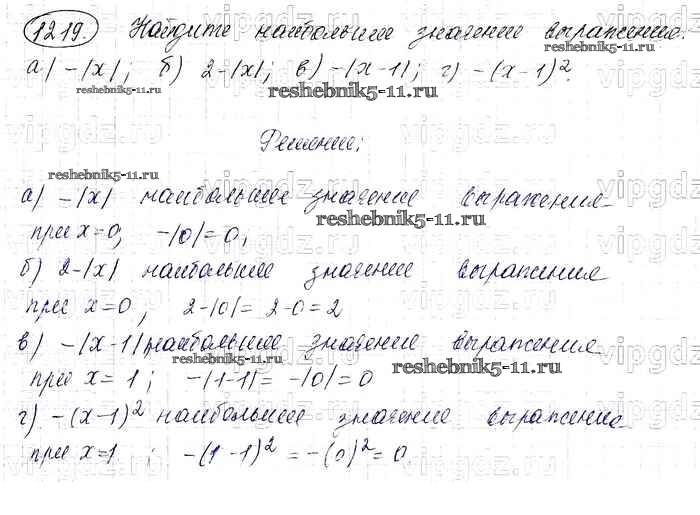 1219. Найдите наибольшее значение выражения.
а) -|x|; б) 2-|x|; в) -|x-1|; г) -(x-1)².
reshebnik5-11.ru
reshebnik5-11.ru
Решение;
reshebnik5-11.ru
а) -|x| наибольшее значение выражения
reshebnik5-11.ru
при x=0; -|0|=0;
б) 2-|x| наибольшее значение выражения
при x=0; 2-|0|= 2-0=2
в) -|x-1| наибольшее значение выражения
reshebnik5-11.ru
reshebnik5-11.ru
при x= 1; -|1-1|= -|0|=0
г) -(x-1)² наибольшее значение выражения
при x=1; -(1-1)²=-(0)²=0.
vipgdz.ru